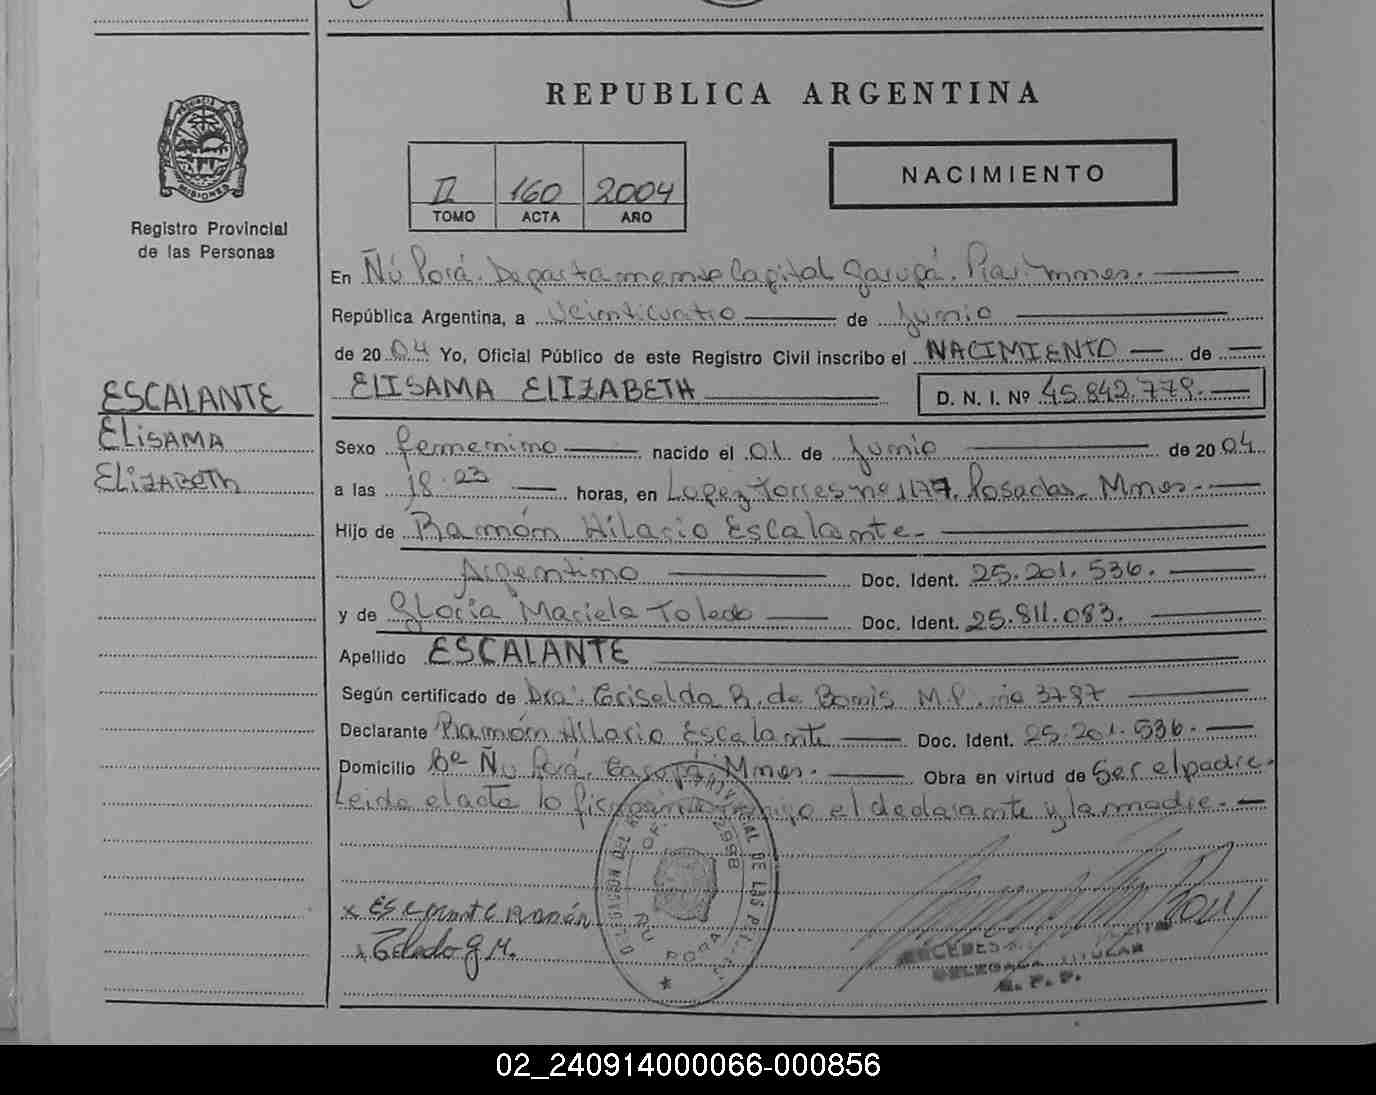 REPUBLICA ARGENTINA
PROVINCIA DE MISIONES
Registro Provincial
de las Personas
II 160 2004
TOMO ACTA AÑO
NACIMIENTO
En Ñú Porá. Departamento Capital Garupá. Mnes.
República Argentina, a veinticuatro de Junio
de 2004 Yo, Oficial Público de este Registro Civil inscribo el NACIMIENTO de
ELISAMA ELIZABETH D. N. I. Nº 45.842.779.
ESCALANTE
ELISAMA
ELIZABETH
Sexo femenino nacido el 01 de Junio de 2004.
a las 18.23 horas, en Lopez Torres nº 1177. Posadas. Mnes.
Hijo de Ramón Hilario Escalante.
Argentino Doc. Ident. 25.201.536.
y de Gloria Mariela Toledo Doc. Ident. 25.811.083.
Apellido ESCALANTE
Según certificado de Dra. Griselda R. de M.P. nº 3797
Declarante Ramón Hilario Escalante Doc. Ident. 25.201.536.
Domicilio Bº Ñu Porá. Garupá, Mnes. Obra en virtud de Ser el padre.
Leida el acta lo el declarante y la madre.
DELEGACION DEL PROVINCIAL DE LAS
OF. 2998
ÑU PORA
x Escalante Ramón
x Toledo G M.
DELEGADA TITULAR
02_240914000066-000856